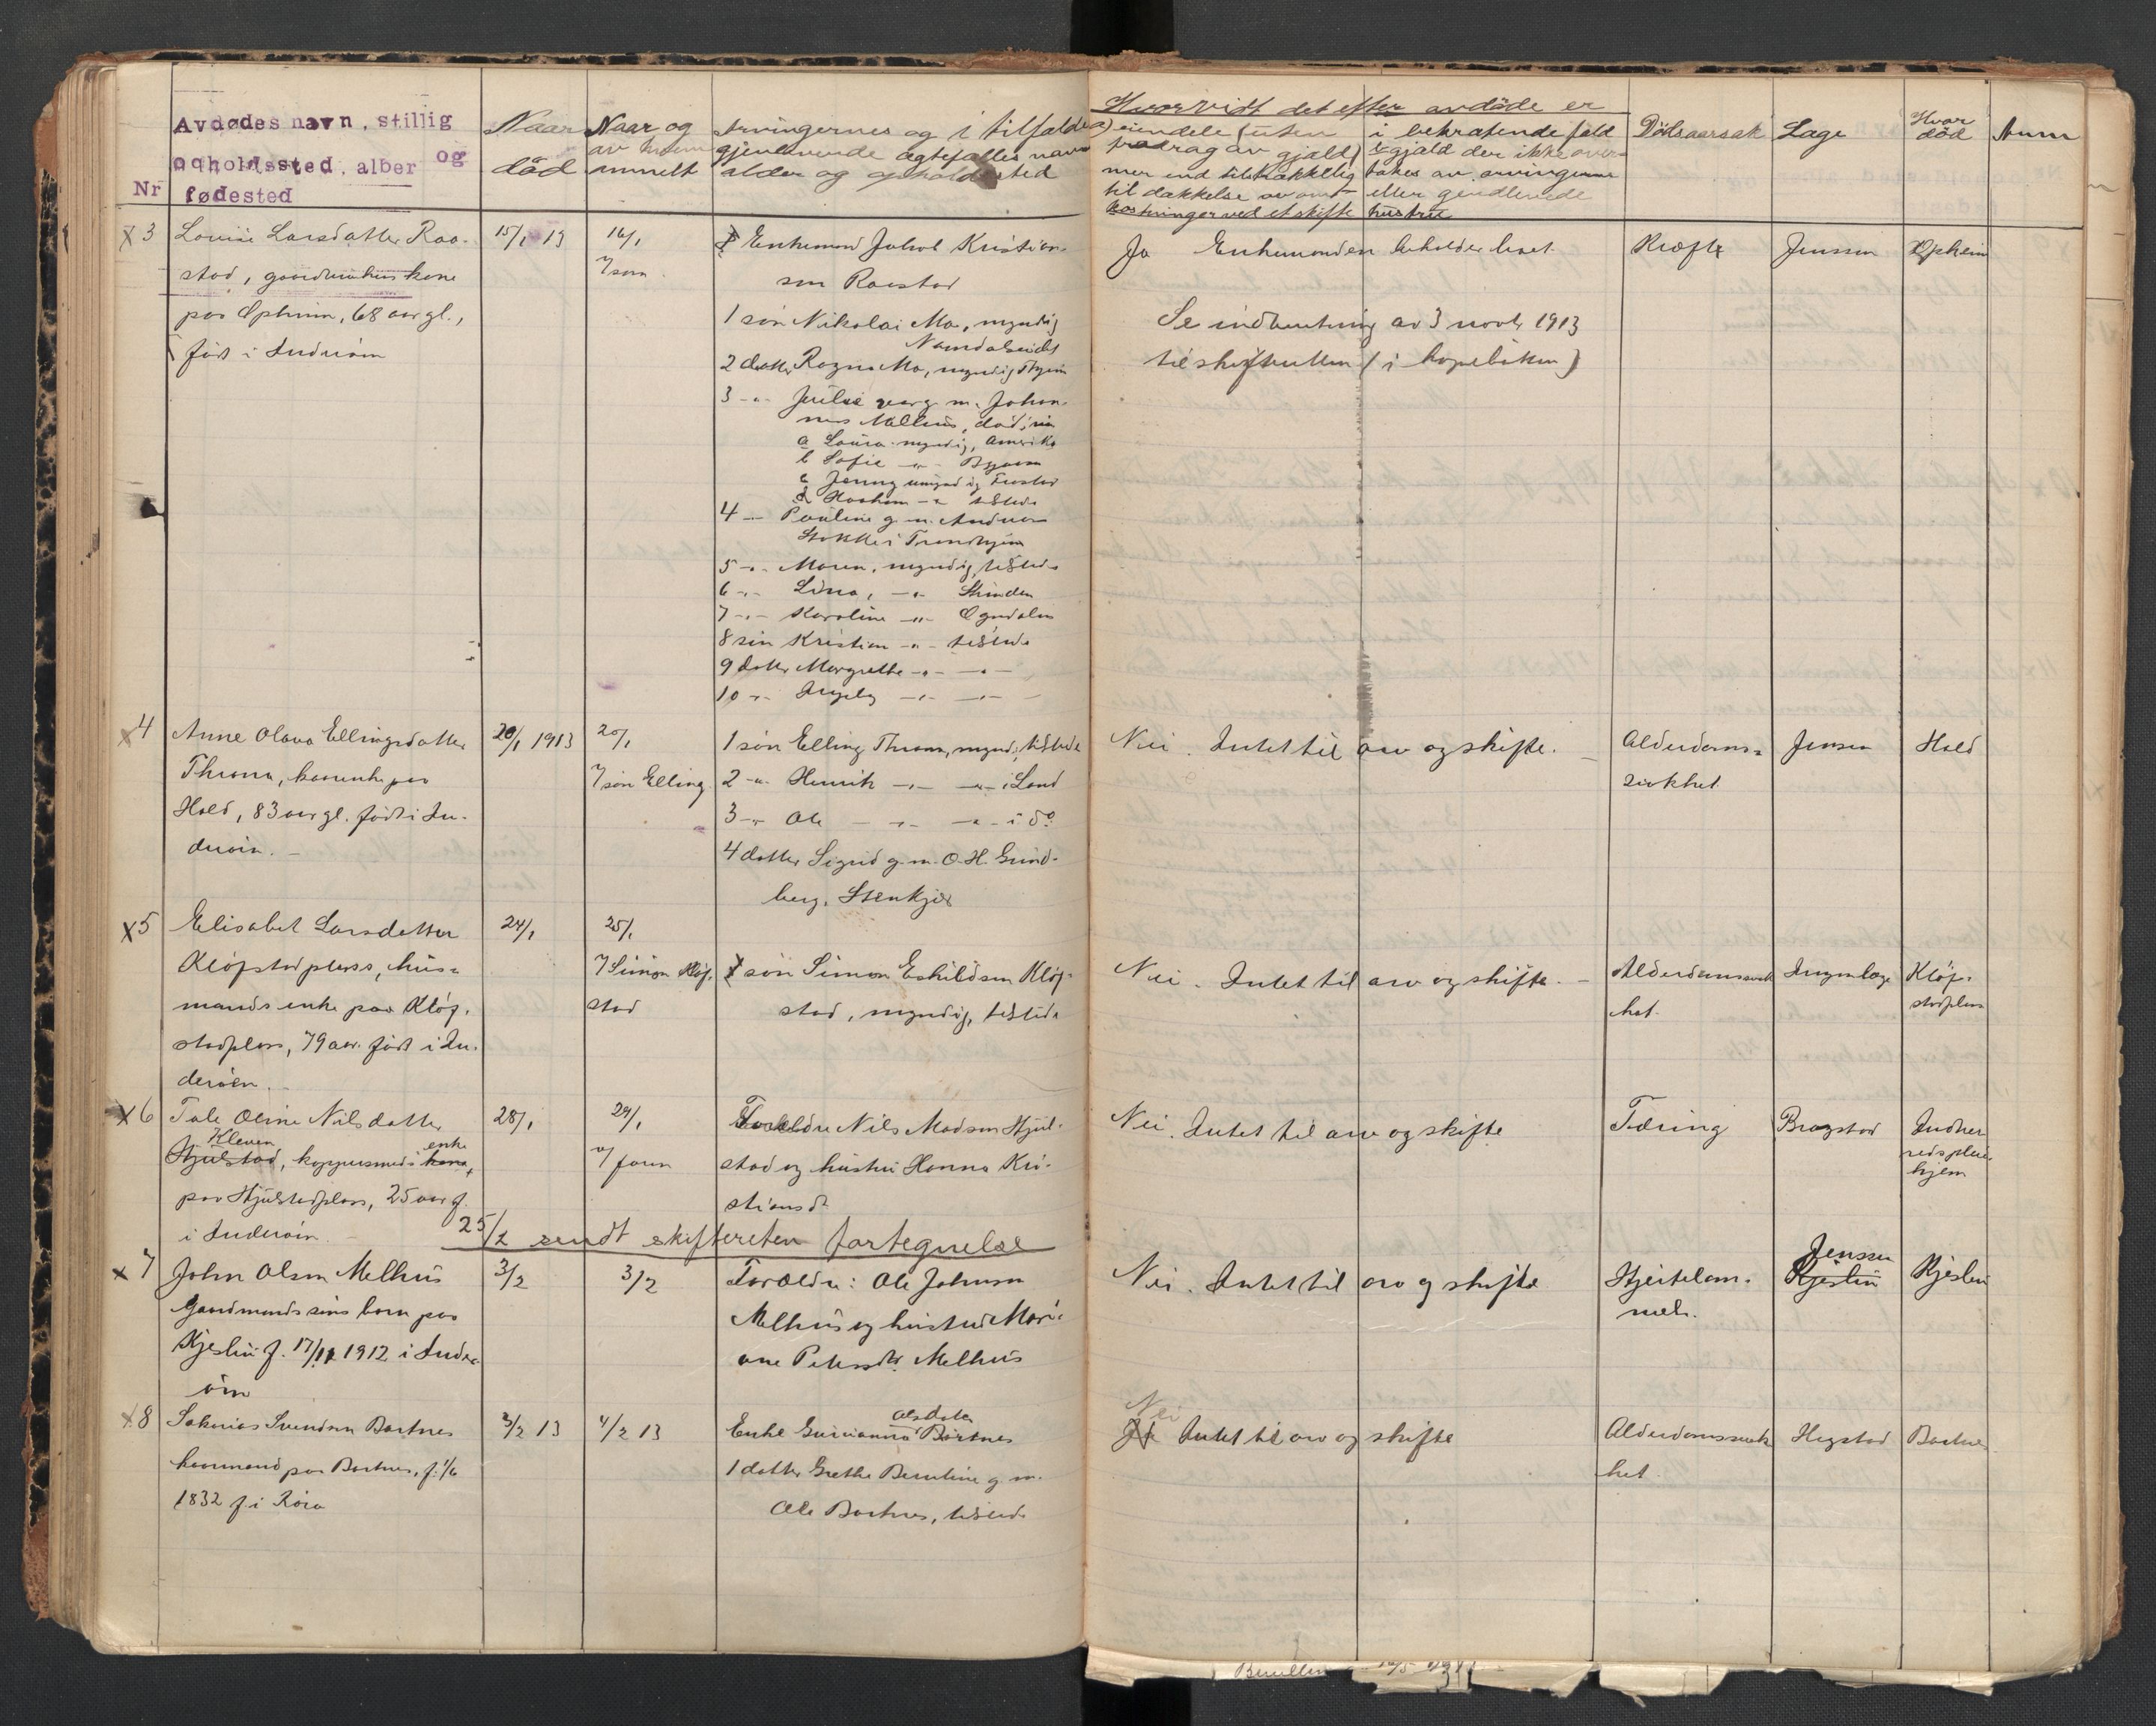 Avdødes navn, stillig
opholdssted, alder og
fødested
Nr
Naar
død
Naar og
av hvem
anmelt
Arvingernes og i tilfælde
gjenlevende ægtefælles navn
alder og opholdssted
Hvorvidt det efter avdøde er
a) eiendele (uten
fradrag av gjæld)
mer end tilstrækkelig
til dækkelse av om-
kostninger ved et skifte
i bekræftende fald
gjæld der ikke over-
takes av arvingerne
eller gjenlevende
hustru
Dödsaarsak
Læge
Hvor
död
Anm
3
Louise Larsdatter Raa-
stad, gaardmands kone
paa Opheim, 68 aar gl.,
född i Inderöen
15/1 13
16/1
7 sam.
Enkemand Jakob Kristian-
sen Raastad
1 sön Nikolai Mo, myndig
Namdalseidet
2 datter Ragna Mo, myndig
3 -"- Julie g. m. Johan-
nes Melhus, död,
a Laura myndig, Amerika
b Sofie -"-
c Jenny umyndig Frostad
d Haakon -"- tilstede
4 -"- Pauline g. m. Andreas
Stokke i Trondhjem
5 -"- Maren, myndig, tilstede
6 -"- Lina, -"- Strinden
7 -"- Karoline -"- Ogndalen
8 sön Kristian -"- tilstede
9 datter Margrethe -"- -"-
10 -"- Ingeborg -"- -"-
Ja Enkemanden beholder boet.
Se indberetning av 3 novbr 1913
til skifteretten (i kopiboken)
Kræft
Jenssen
Opheim
4
Anne Olava Ellingsdatter
Throna, kaarenke paa
Hald, 83 aar gl. född i In-
deröen.
20/1 1913
20/1
7 sön Elling
1 sön Elling Throna, myndig, tilstede
2 -"- Henrik -"- -"- i Land
3 -"- Ole -"- -"- i do
4 datter Sigrid g. m. O. H. Grind-
berg, Stenkjer
Nei. Intet til arv og skifte.
Alderdoms-
svakhet
Jensen
Hald
5
Elisabet Larsdatter
Klöfstadplass, hus-
mands enke paa Klöf-
stadplass, 79 aar. född i In-
deröen.
24/1
25/1
7 Simon Klöf-
stad
sön Simon Eskildsen Klöf-
stad, myndig, tilstede
Nei. Intet til arv og skifte.
Alderdomssvak
het.
Ingen læge
Klöf-
stadplass
6
Tale Oline Nilsdatter
Kleven enke
Hjulstad, kobbersmeds kone,
paa Hjulstadplass, 25 aar f.
i Inderöen.
28/1
29/1
7 faren
Foreldre Nils Madsen Hjul-
stad og hustru Hanna Kri-
stiansdtr
Nei. Intet til arv og skifte
Tæring
Bragstad
Indher
redspleie
hjem
25/2 sendt skifteretten fortegnelse
7
John Olsen Melhus
Gaardmands söns barn paa
Kjeslin f. 17/11 1912 i Inder-
öen
3/2
3/2
Foreldre: Ole Johnsen
Melhus og hustru Mari-
ane Petersdtr Melhus
Nei. Intet til arv og skifte
Hjertelam-
melse.
Jenssen
Kjeslin
Kjeslin
8
Sakarias Svendsen Bartnes
kaarmand paa Bartnes, f. 1/6
1832 f. i Röra
3/2 13
4/2 13
Olsdatter
Enke Gurianna Bartnes
1 datter Grethe Berntine g. m.
Ole Bartnes, tilstede
Nei
Ja Intet til arv og skifte
Alderdomssvak
het.
Hegstad
Bartnes